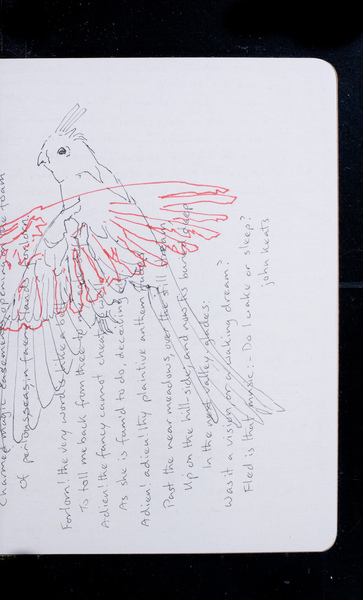 Charm'd magic casements, opening on the foam
Of perilous seas, in faery lands forlorn
Forlorn! the very word is like a bell
To toll me back from thee to
Adieu! the fancy cannot cheat so well
As she is fam'd to do, deceiving
Adieu! adieu! thy plaintive anthem fades
Past the near meadows, over the still stream
Up on the hill-side; and now 'tis buried deep
In the next valley-glades:
Was it a vision, or a waking dream?
Fled is that music:- Do I wake or sleep?
john keats